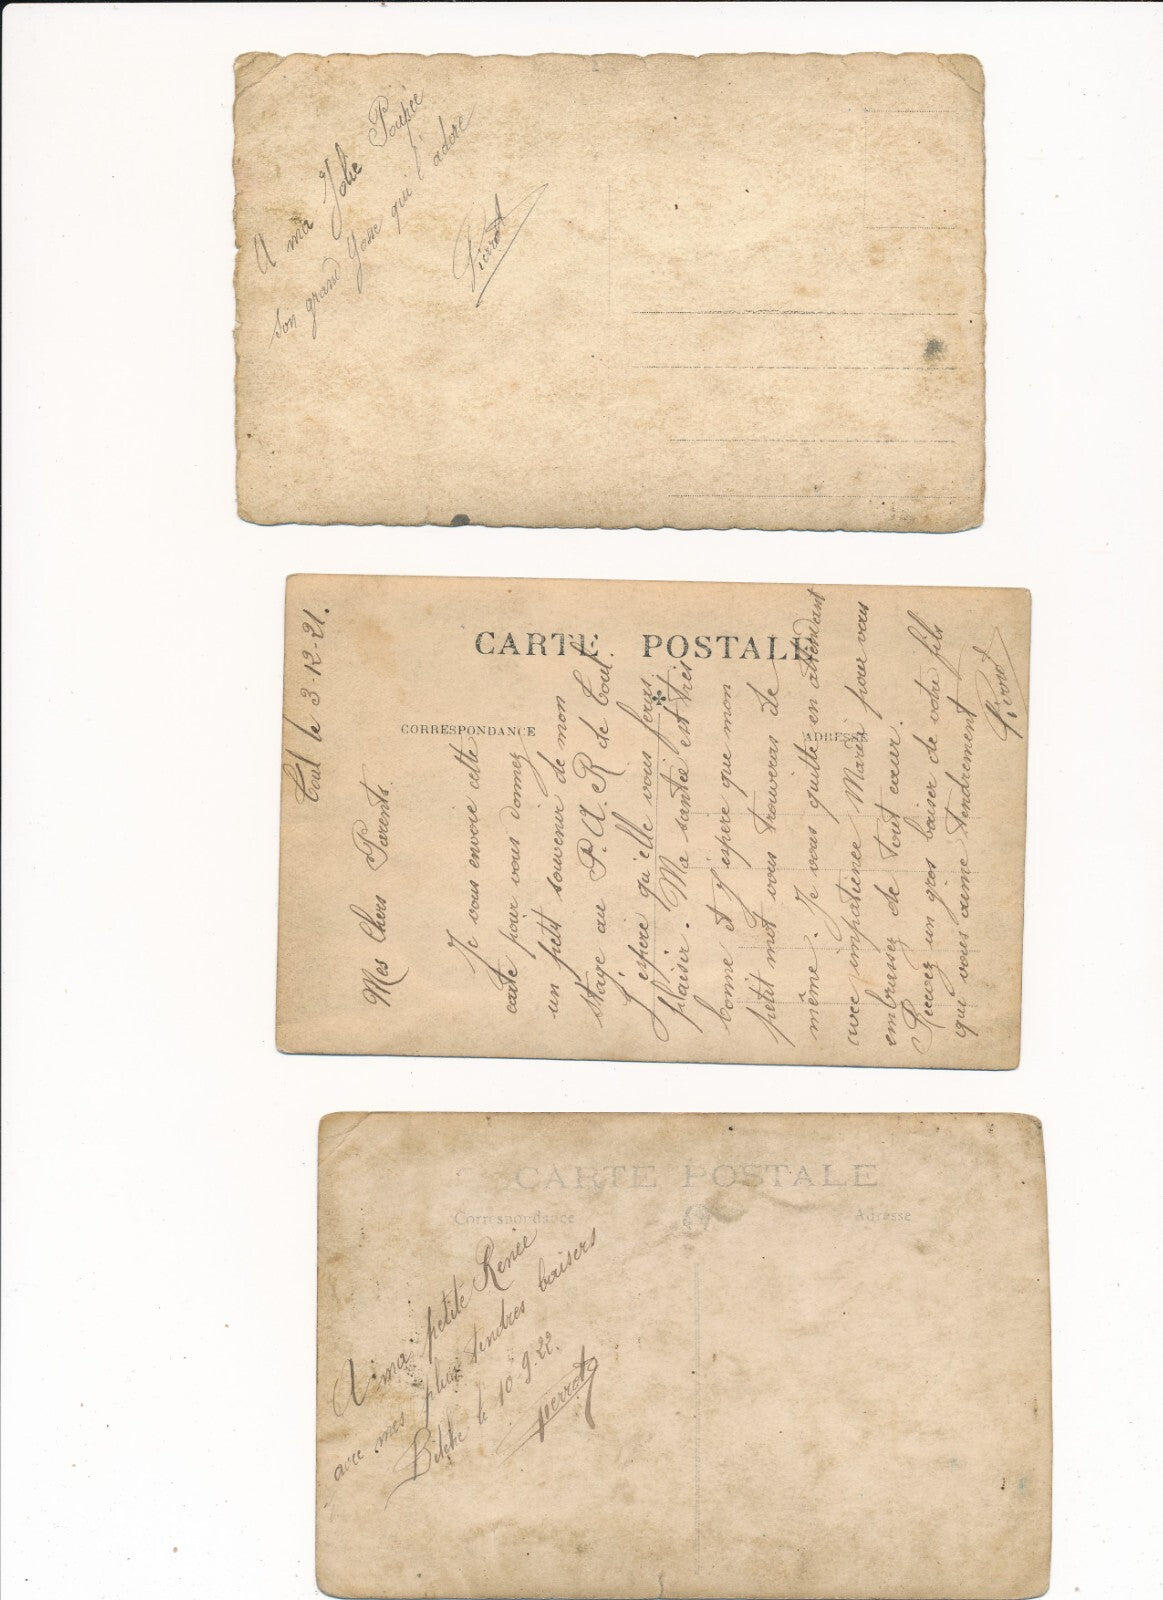 A ma Jolie Poupée
son grand Gosse qui l'adore
Pierrot
CARTE POSTALE
CORRESPONDANCE
ADRESSE
Toul le 3-12-21.
Mes Chers Parents.
Je vous envoie cette
carte pour vous donnez
un petit souvenir de mon
stage au P.A.R de Toul.
J'espere qu'elle vous feras
plaisir. Ma santée est très
bonne et j'espere que mon
petit mot vous trouveras de
même. Je vous quitte en attendant
avec impatience Mardi pour vous
embrassez de tout cœur.
Recevez un gros baiser de votre fils
qui vous aime tendrement
Pierrot
CARTE POSTALE
Correspondance
Adresse
A ma petite Renée
avec mes plus tendres baisers
le 10-9-22.
Pierrot